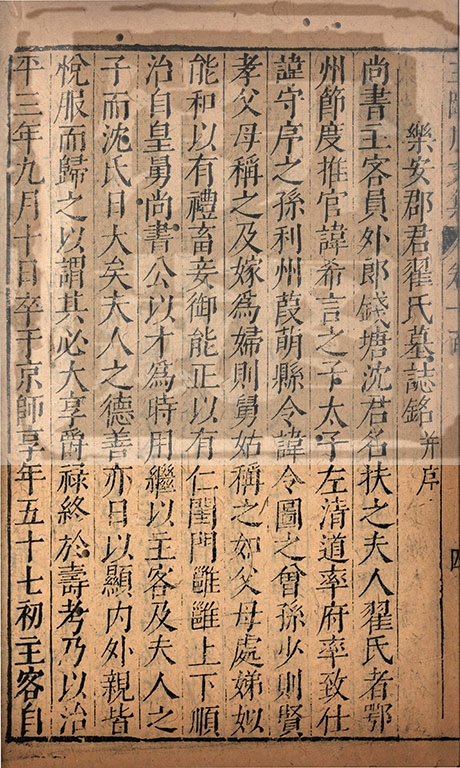 樂安郡君翟氏墓誌銘并序
尚書主客員外郎錢塘沈君名扶之夫人翟氏者鄂
州節度推官諱希言之子太子左清道率府率致仕
諱守序之孫利州葭萌縣令諱令圖之曾孫少則賢
孝父母稱之及嫁為婦則舅姑稱之如父母處娣姒
能和以有禮畜妾御能正以有仁閨門雝雝上下順
治自皇舅尚書公以才為時用繼以主客及夫人之
子而沈氏日大矣夫人之德善亦日以顯內外親皆
悅服而歸之以謂其必大享爵祿終於壽考乃以治
平三年九月十日卒于京師享年五十七初主客自